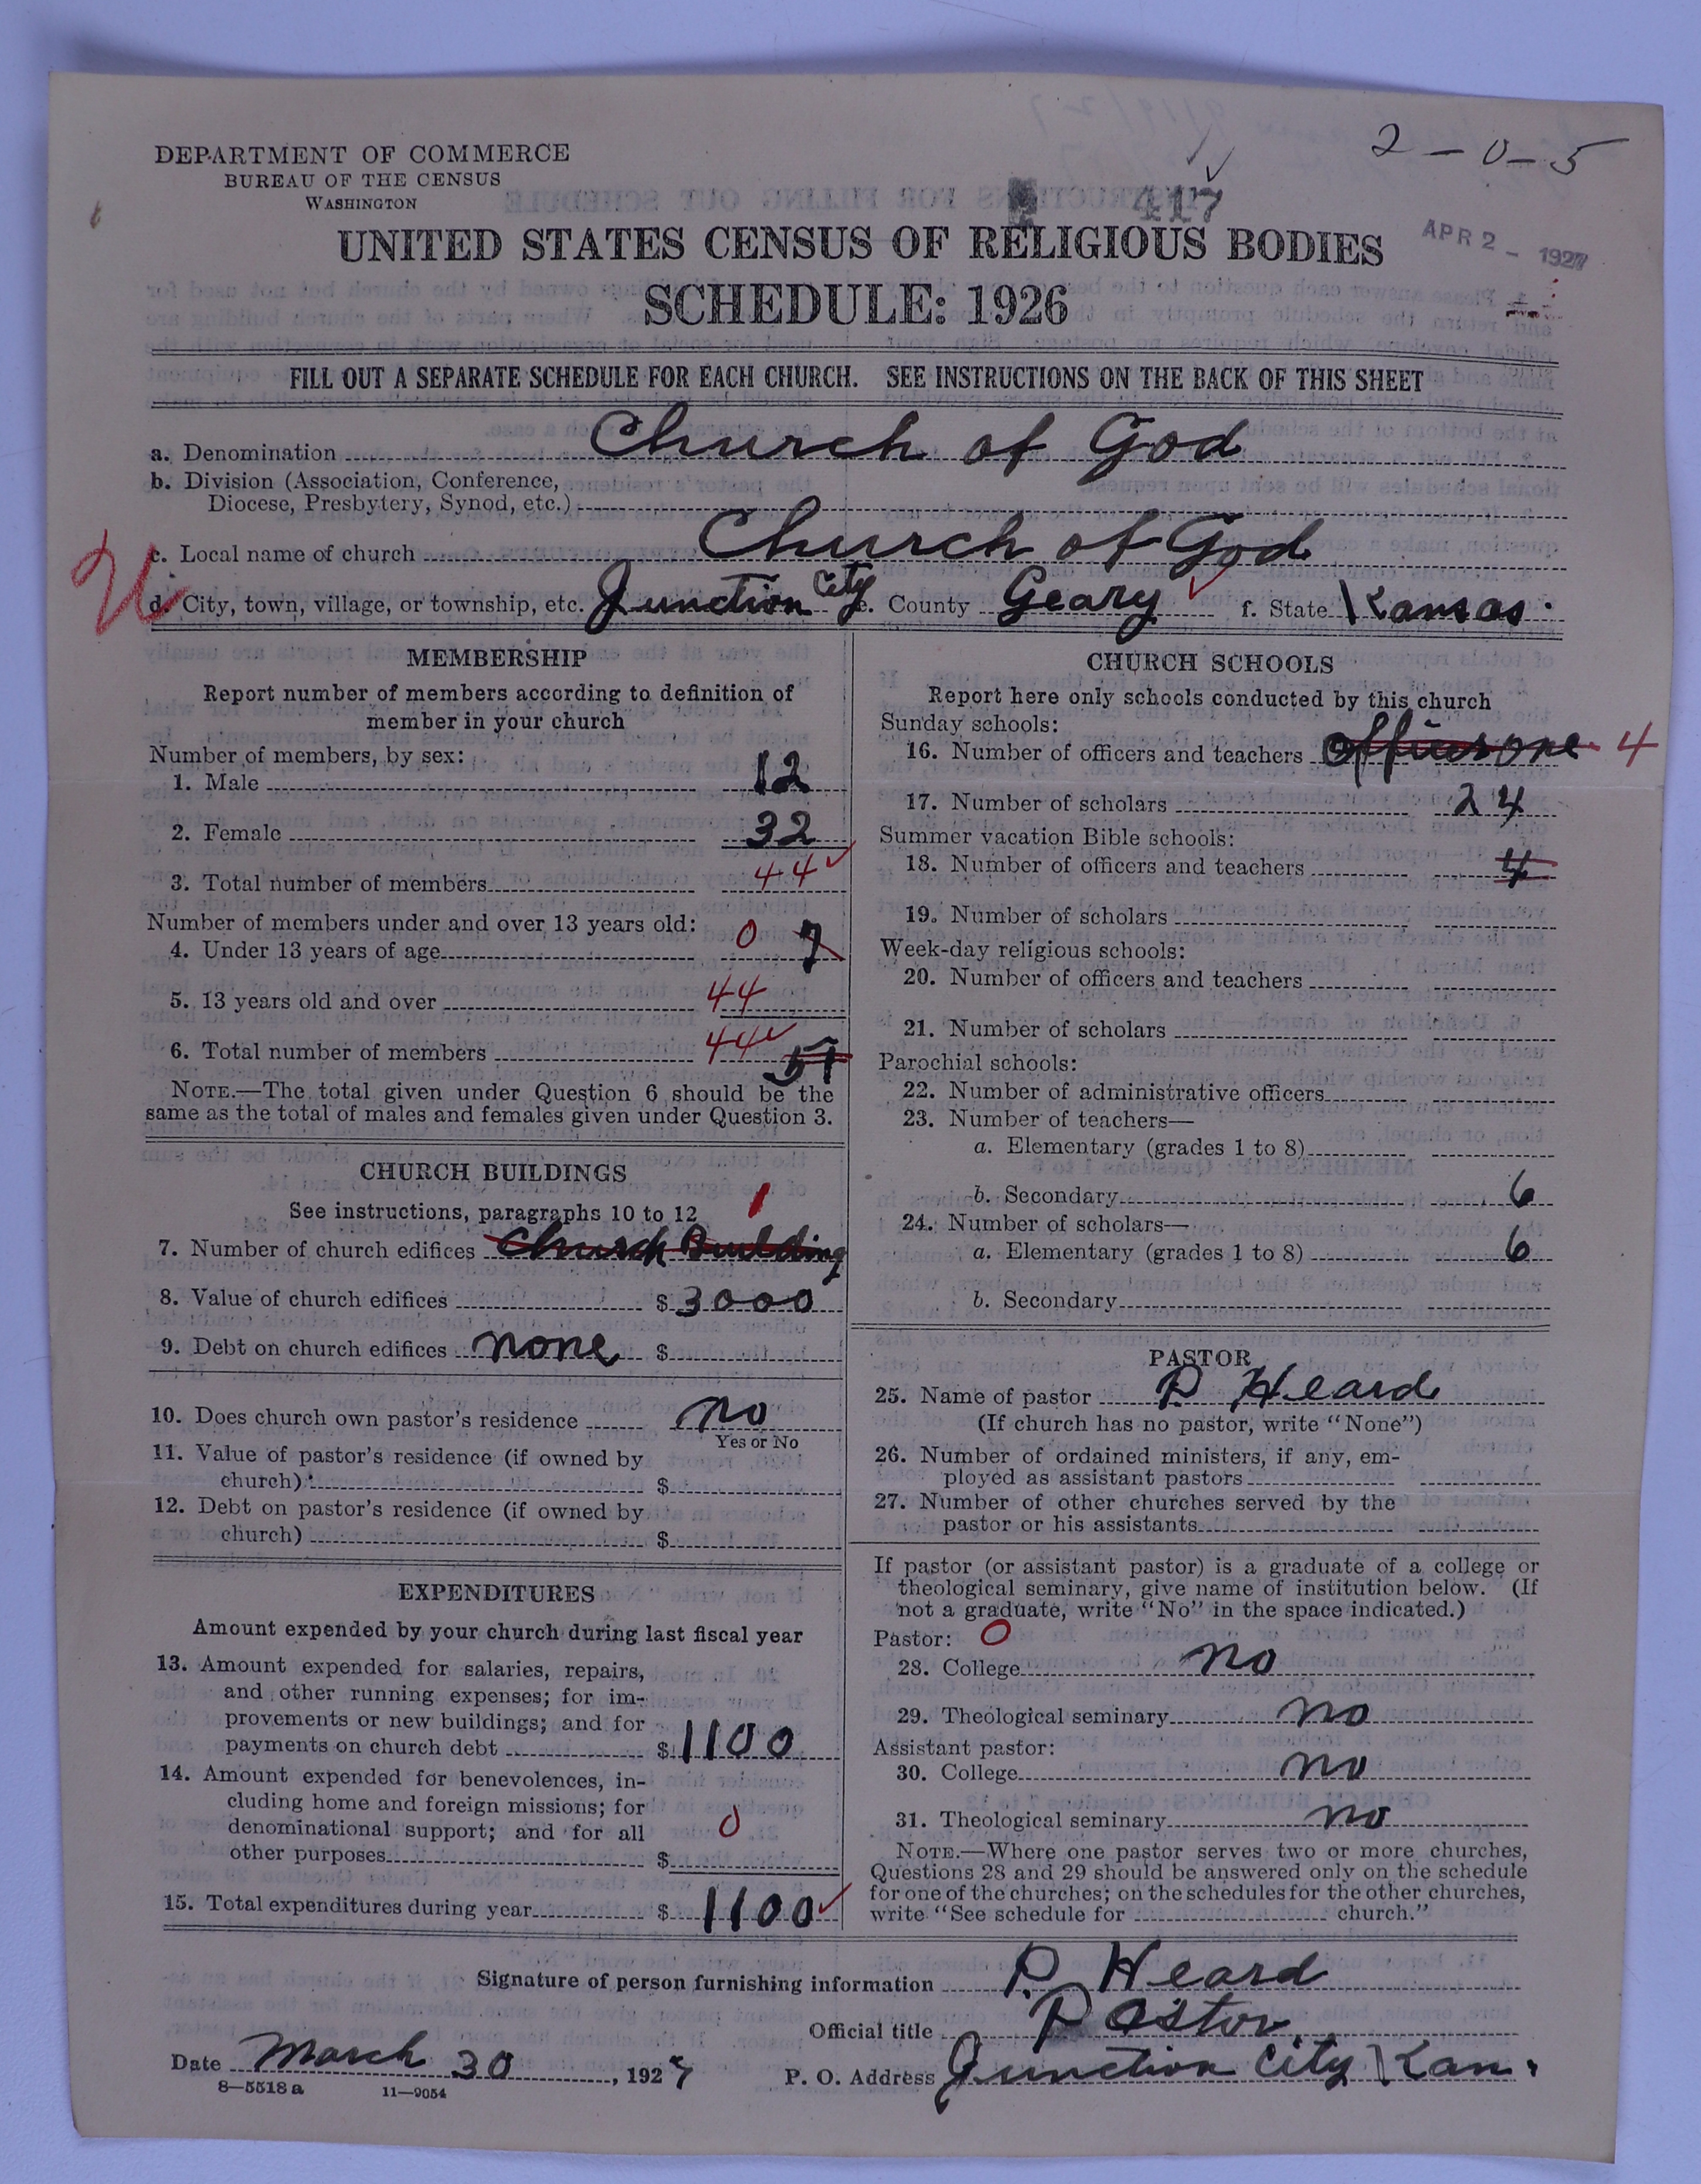 2-0-5
DEPARTMENT OF COMMERCE
BUREAU OF THE CENSUS
WASHINGTON
417
APR 2 - 1927
UNITED STATES CENSUS OF RELIGIOUS BODIES
SCHEDULE: 1926
FILL OUT A SEPARATE SCHEDULE FOR EACH CHURCH. SEE INSTRUCTIONS ON THE BACK OF THIS SHEET
a. Denomination Church of God
b. Division (Association, Conference,
Diocese, Presbytery, Synod, etc.)
c. Local name of church Church of God
d. City, town, village, or township, etc. Junction City e. County Geary f. State Kansas.
MEMBERSHIP
Report number of members according to definition of
member in your church
Number of members, by sex:
1. Male 12
2. Female 32
3. Total number of members 44
Number of members under and over 13 years old:
4. Under 13 years of age 0 7
5. 13 years old and over 44
6. Total number of members 44 51
NOTE.—The total given under Question 6 should be the
same as the total of males and females given under Question 3.
CHURCH BUILDINGS
See instructions, paragraphs 10 to 12
1
7. Number of church edifices Church Building
8. Value of church edifices $ 3000
9. Debt on church edifices none $
10. Does church own pastor's residence no
Yes or No
11. Value of pastor's residence (if owned by
church) $
12. Debt on pastor's residence (if owned by
church) $
EXPENDITURES
Amount expended by your church during last fiscal year
13. Amount expended for salaries, repairs,
and other running expenses; for im-
provements or new buildings; and for
payments on church debt $ 1100
14. Amount expended for benevolences, in-
cluding home and foreign missions; for
denominational support; and for all 0
other purposes $
15. Total expenditures during year $ 1100
CHURCH SCHOOLS
Report here only schools conducted by this church
Sunday schools:
16. Number of officers and teachers officers one 4
17. Number of scholars 24
Summer vacation Bible schools:
18. Number of officers and teachers 4
19. Number of scholars
Week-day religious schools:
20. Number of officers and teachers
21. Number of scholars
Parochial schools:
22. Number of administrative officers
23. Number of teachers—
a. Elementary (grades 1 to 8)
b. Secondary 6
24. Number of scholars—
a. Elementary (grades 1 to 8) 6
b. Secondary
PASTOR
25. Name of pastor P. Heard
(If church has no pastor, write "None")
26. Number of ordained ministers, if any, em-
ployed as assistant pastors
27. Number of other churches served by the
pastor or his assistants
If pastor (or assistant pastor) is a graduate of a college or
theological seminary, give name of institution below. (If
not a graduate, write "No" in the space indicated.)
Pastor: 0
28. College no
29. Theological seminary no
Assistant pastor:
30. College no
31. Theological seminary no
NOTE.—Where one pastor serves two or more churches,
Questions 28 and 29 should be answered only on the schedule
for one of the churches; on the schedules for the other churches,
write "See schedule for church."
Signature of person furnishing information P. Heard
Official title Pastor
Date March 30, 1927 P. O. Address Junction City Kan.
8—5518a 11—9054